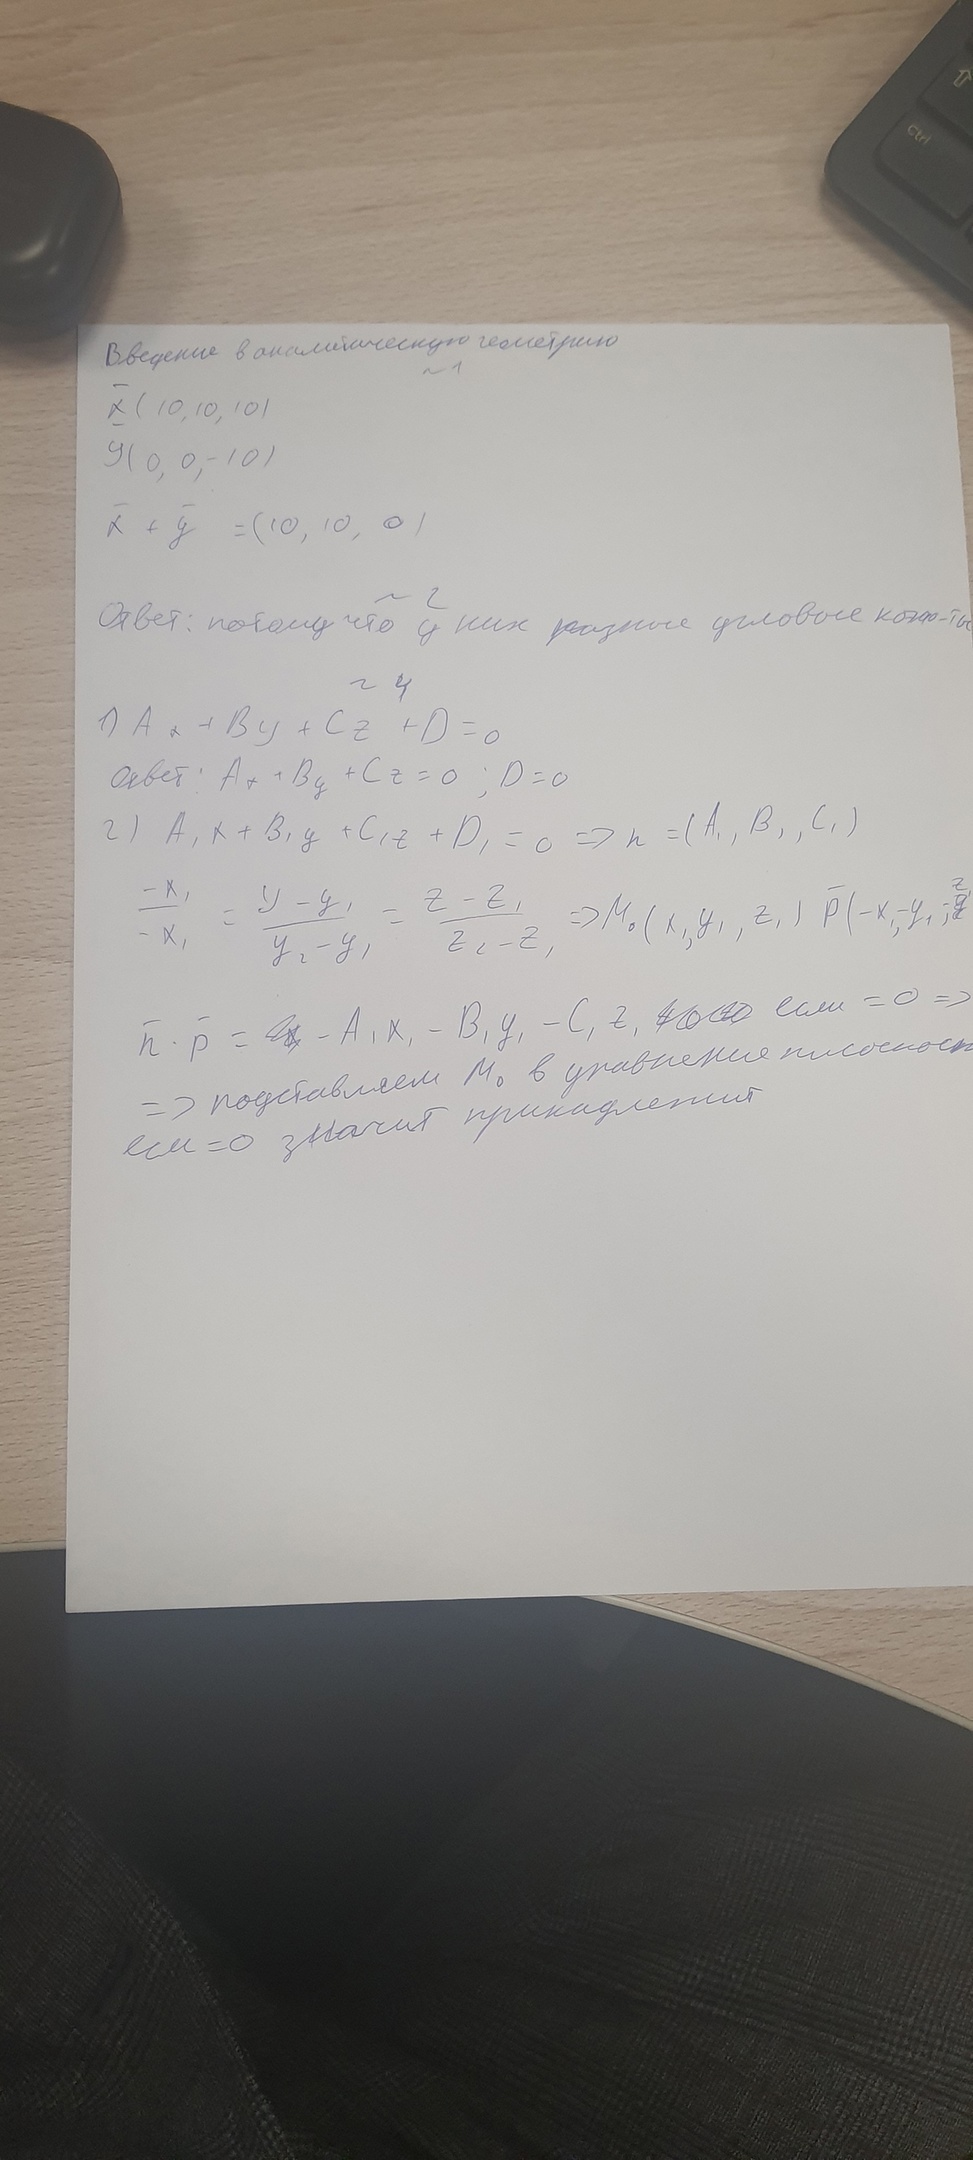 Ctrl
Введение в аналитическую геометрию
~1
x̄(10,10,10)
y(0,0,-10)
x̄ + ȳ = (10, 10, 0)
~2
Ответ: потому что у них разные угловые
~4
1) Ax + By + Cz + D = 0
Ответ: Ax + By + Cz = 0; D = 0
2) A₁x + B₁y + C₁z + D₁ = 0 => n = (A₁, B₁, C₁)
-x₁/-x₁ = y-y₁/y₂-y₁ = z-z₁/z₂-z₁ => M₀(x₁y₁, z₁) p̄(-x₁-y₁-z
n̄·p̄ = -A₁x₁ - B₁y₁ - C₁z₁ если = 0 =>
=> подставляем M₀ в уравнение плоскост
если = 0 значит принадлежит